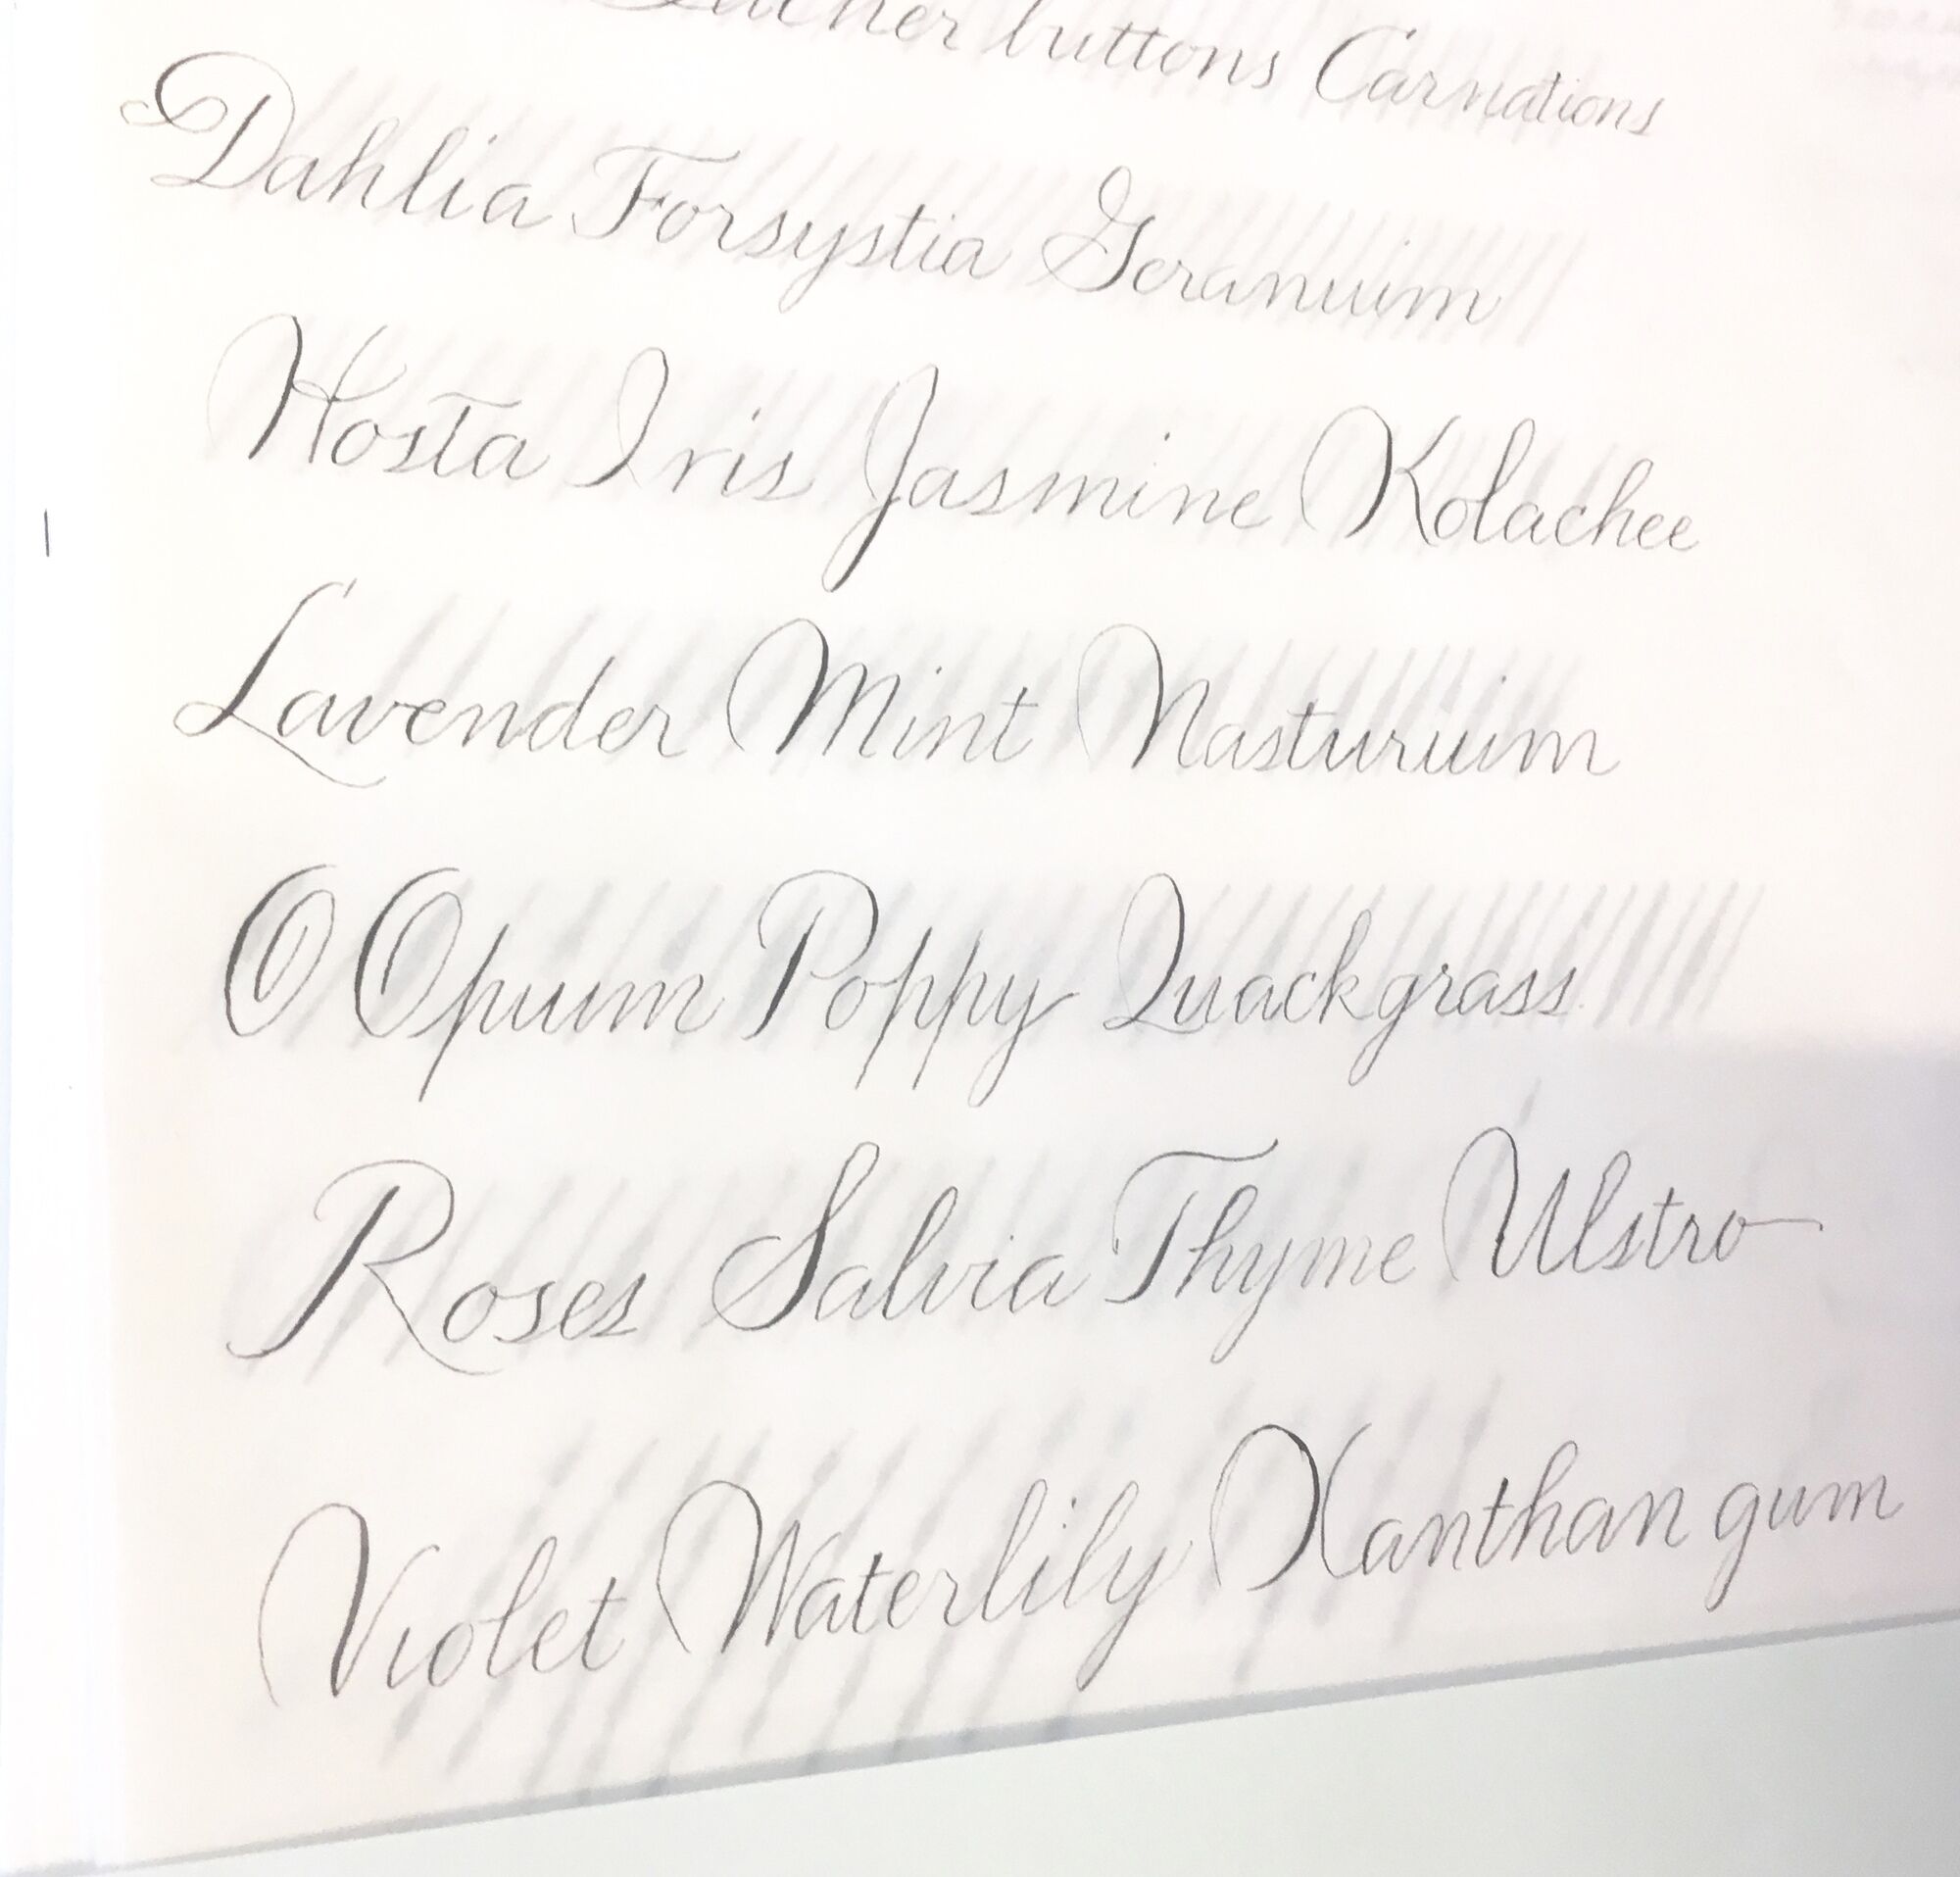 buttons Carnations
Dahlia Forsystia Geranuim
Hosta Iris Jasmine Kolachee
Lavender Mint Nasturuim
O Opuim Poppy Quackgrass
Roses Salvia Thyme Ulstro
Violet Waterlily Xanthan gum